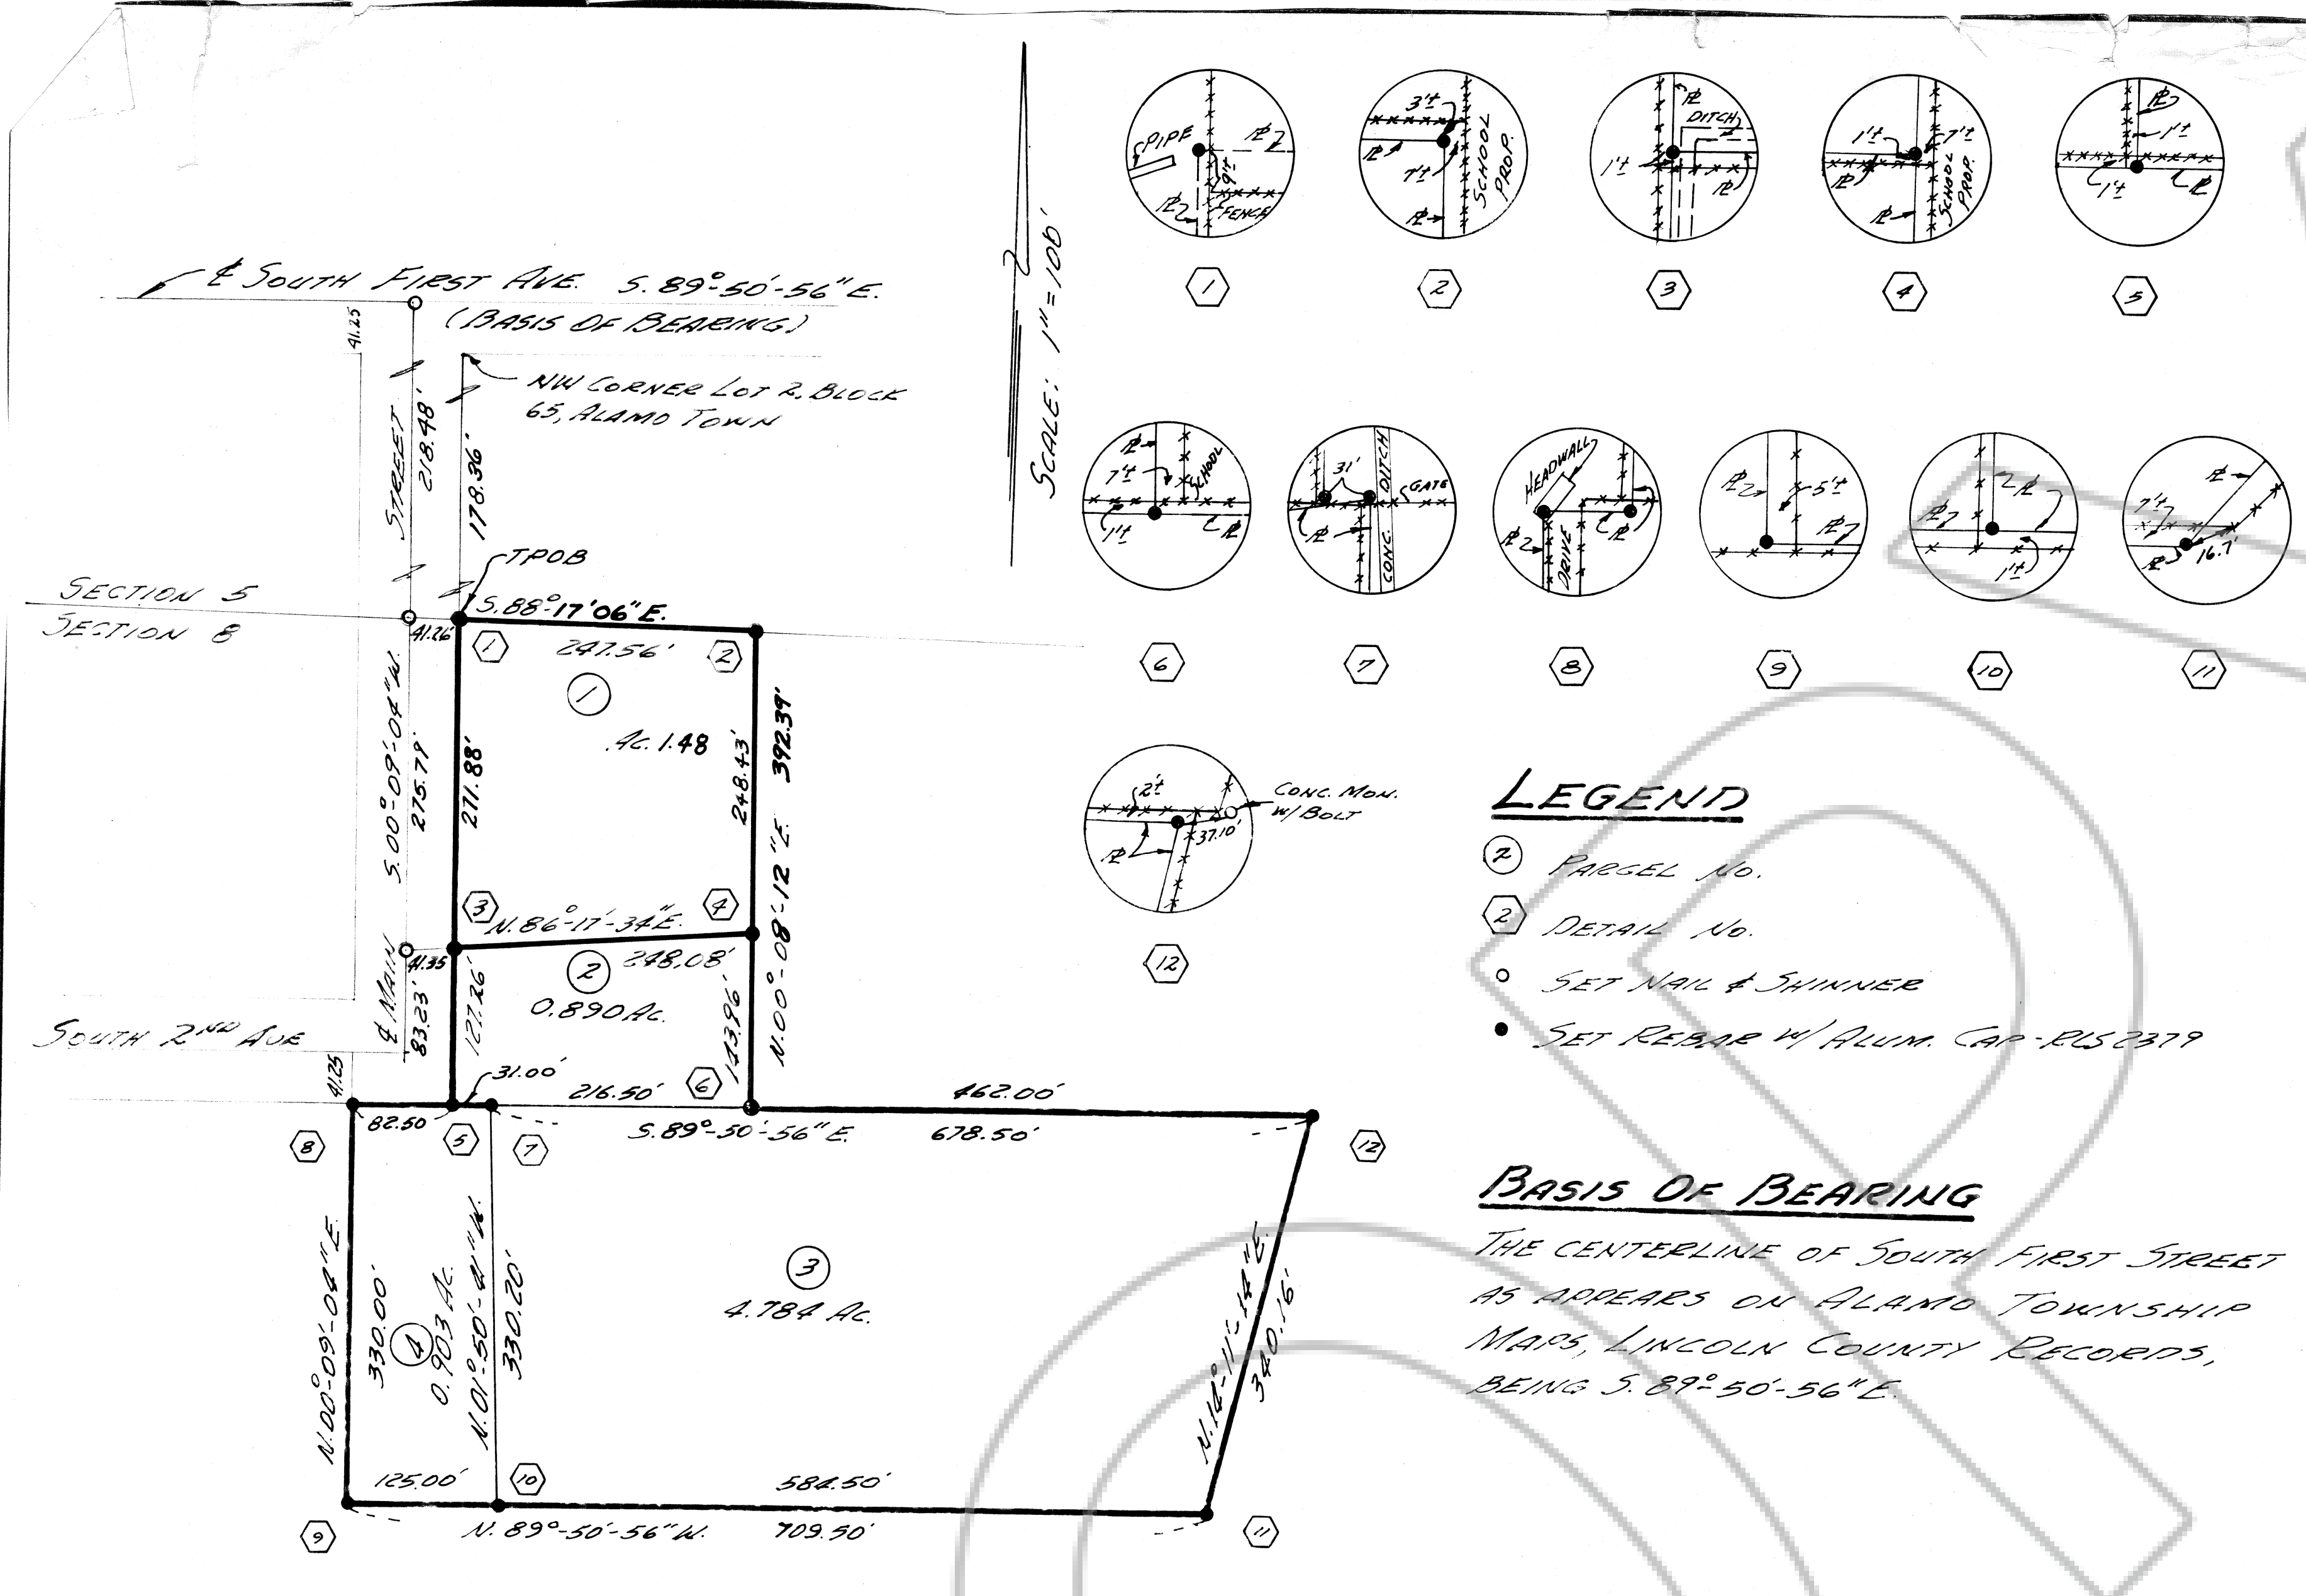 ℄ SOUTH FIRST AVE. S. 89°-50'-56" E.
(BASIS OF BEARING)
41.25
STREET
218.48'
178.36'
NW CORNER LOT 2, BLOCK
65, ALAMO TOWN
SCALE: 1"=100'
TPOB
SECTION 5
SECTION 8
41.26'
S. 88°-17'06" E.
247.56'
1
2
1
AC. 1.48
S. 00°-09'-04" W.
275.79'
271.88'
248.43'
392.39'
N. 00°-08'-12" E.
3
N. 86°-17'-34" E.
4
41.35
2
248.08'
0.890 AC.
℄ MAIN
83.23'
127.26'
143.96'
SOUTH 2ND AVE
41.25
31.00'
216.50'
6
462.00'
82.50
5
7
S. 89°-50'-56" E.
678.50'
8
12
N. 00°-09'-04" E.
330.00'
4
0.903 AC.
N. 01°-50'-41" W.
330.20'
3
4.784 AC.
N. 14°-11'-14" E.
340.16'
125.00'
10
584.50'
9
N. 89°-50'-56" W.
709.50'
11
PIPE
℄
9'±
℄
FENCE
1
3'±
℄
7'±
℄
SCHOOL
PROP.
2
℄
DITCH
1'±
℄
3
1'±
7'±
℄
℄
SCHOOL
PROP.
4
℄
1'±
1'±
℄
5
℄
7'±
SCHOOL
1'±
℄
6
31'
DITCH
GATE
℄
CONC.
7
HEADWALL
℄
DRIVE
℄
8
℄
5'±
℄
9
℄
℄
1'±
10
℄
7'±
℄
16.7'
11
2'±
℄
37.10'
CONC. MON.
W/ BOLT
12
LEGEND
2 PARCEL NO.
2 DETAIL NO.
SET NAIL & SHINNER
SET REBAR W/ ALUM. CAP - RLS 2379
BASIS OF BEARING
THE CENTERLINE OF SOUTH FIRST STREET
AS APPEARS ON ALAMO TOWNSHIP
MAPS, LINCOLN COUNTY RECORDS,
BEING S. 89°-50'-56" E.